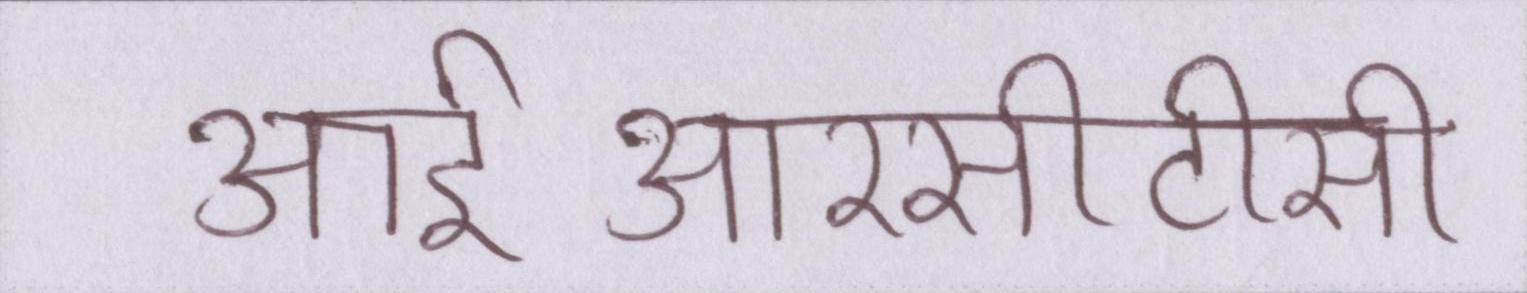 आई आरसीटीसी